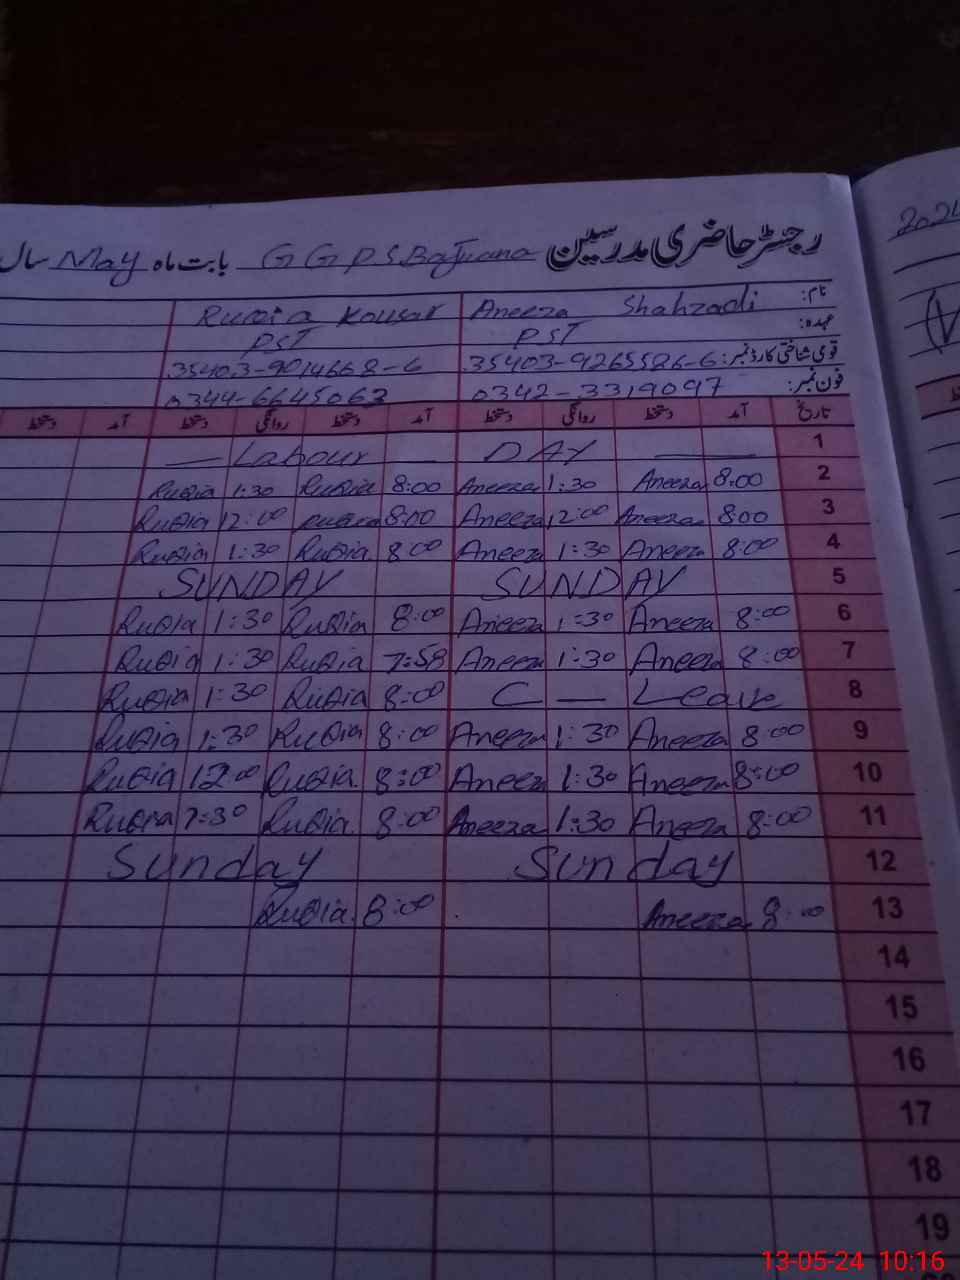 رجسٹر حاضری مدرسین GGPS Bajuana بابت ماہ May سال
2024
نام: Aneeza Shahzadi Ruqia Kousar
عہدہ: PST PST
قومی شناختی کارڈ نمبر: 35403-9265526-6 35403-9014668-6
فون نمبر: 0342-3319097 0344-6645063
تاریخ آمد دستخط روانگی دستخط آمد دستخط روانگی دستخط آمد دستخط
1 — Labour — DAY —
2 8:00 Aneeza 1:30 Aneeza 8:00 Ruqia 1:30 Ruqia
3 8:00 Aneeza 12:00 Aneeza 8:00 Ruqia 12:00 Ruqia
4 8:00 Aneeza 1:30 Aneeza 8:00 Ruqia 1:30 Ruqia
5 SUNDAY SUNDAY
6 8:00 Aneeza 1:30 Aneeza 8:00 Ruqia 1:30 Ruqia
7 8:00 Aneeza 1:30 Aneeza 7:58 Ruqia 1:30 Ruqia
8 C — Leave 8:00 Ruqia 1:30 Ruqia
9 8:00 Aneeza 1:30 Aneeza 8:00 Ruqia 1:30 Ruqia
10 8:00 Aneeza 1:30 Aneeza 8:00 Ruqia 12:00 Ruqia
11 8:00 Aneeza 1:30 Aneeza 8:00 Ruqia 1:30 Ruqia
12 Sunday Sunday
13 8:00 Aneeza 8:00 Ruqia
14
15
16
17
18
19
13-05-24 10:16